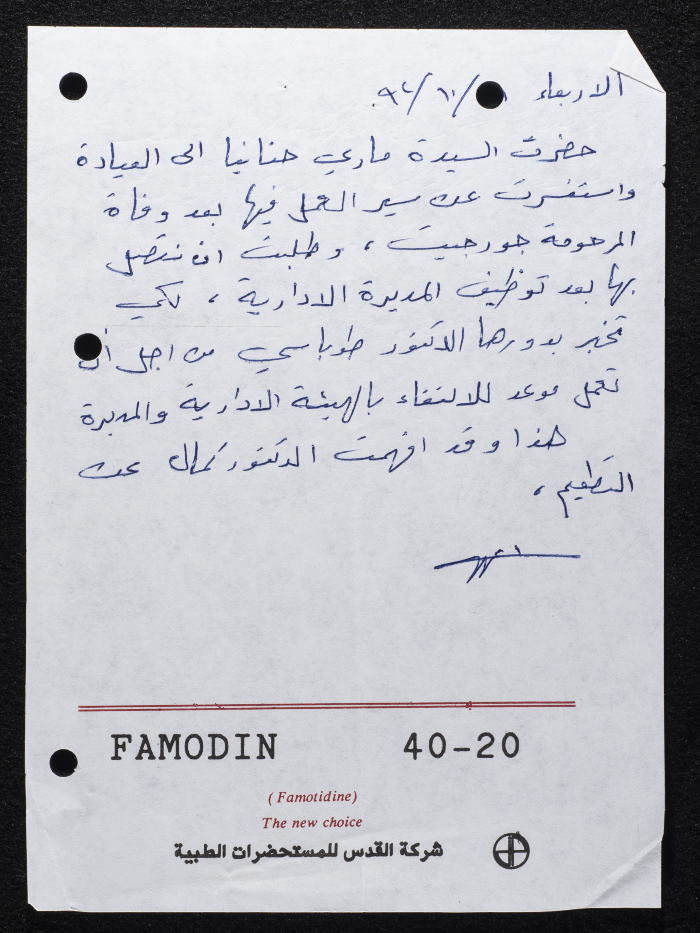 الاربعاء
حضرت السيدة ماري حنانيا الى العيادة
واستفسرت عن سير العمل فيها بعد وفاة
المرحومة جورجيت ، وطلبت ان نتصل
بها بعد توظيف المديرة الادارية ، لكي
تخبر بدورها الدكتور طوباسي من اجل أن
تعمل موعد للالتقاء بالهيئة الادارية والمديرة
هذا وقد افهمت الدكتور كمال عن
التطعيم ،
FAMODIN 40-20
(Famotidine)
The new choice
شركة القدس للمستحضرات الطبية